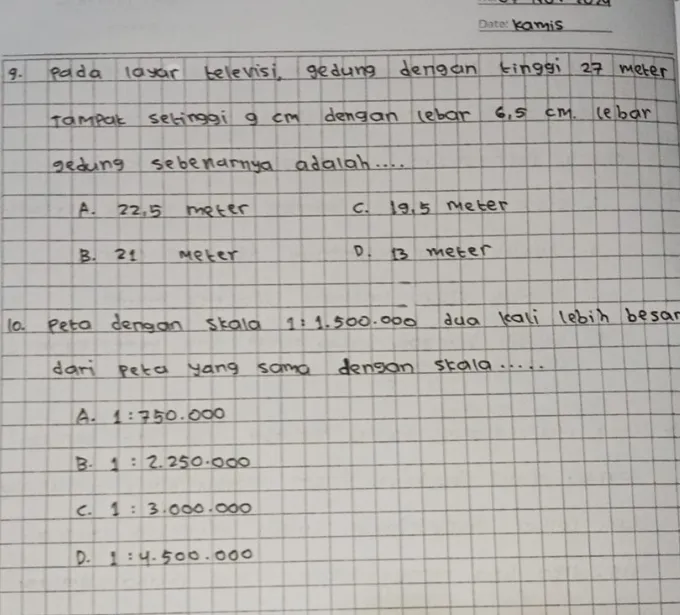 Date: Kamis
9. Pada layar televisi, gedung dengan tinggi 27 meter
Tampak setinggi 9 cm dengan lebar 6,5 cm. lebar
gedung sebenarnya adalah....
A. 22,5 meter C. 19,5 meter
B. 21 meter D. 13 meter
10. Peta dengan skala 1:1.500.000 dua kali lebih besar
dari peta yang sama dengan skala.....
A. 1:750.000
B. 1 : 2.250.000
C. 1 : 3.000.000
D. 1 : 4.500.000